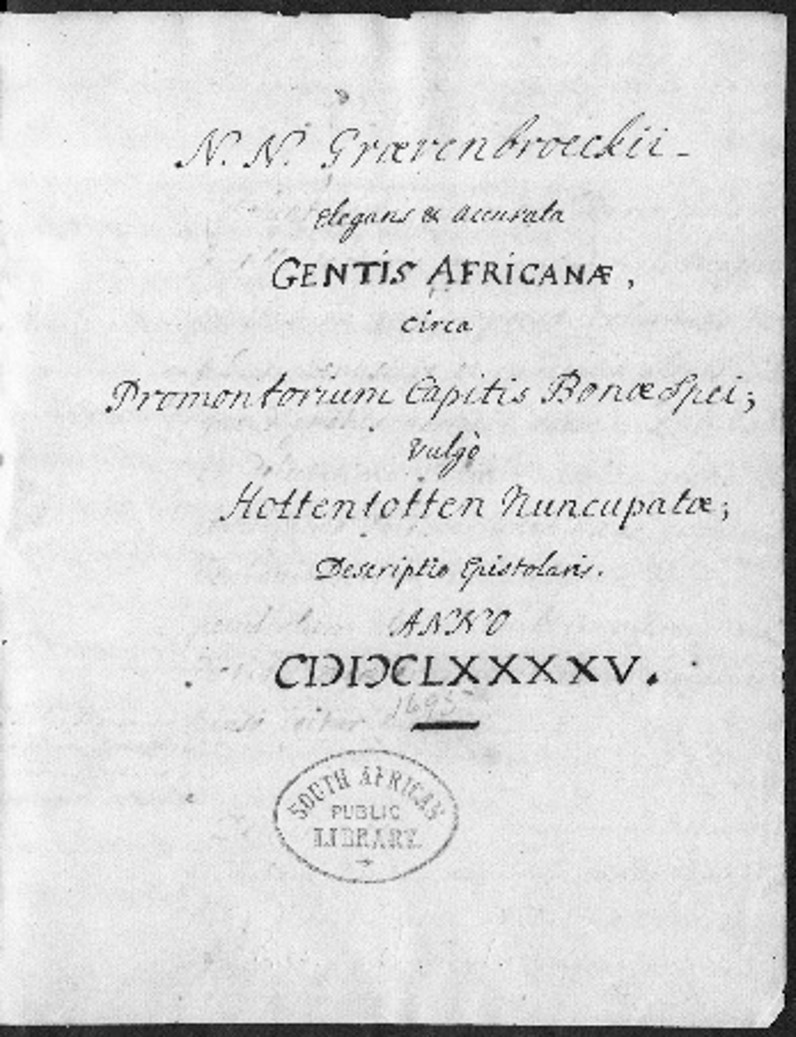 N. N. Grævenbroeckii
Elegans & accurata
GENTIS AFRICANÆ,
circa
Promontorium Capitis Bonæ Spei;
vulgò
Hottentotten Nuncupatæ;
Descriptio Epistolaris.
ANNO
CIƆIƆCLXXXXV.
1695
SOUTH AFRICAN
PUBLIC
LIBRARY